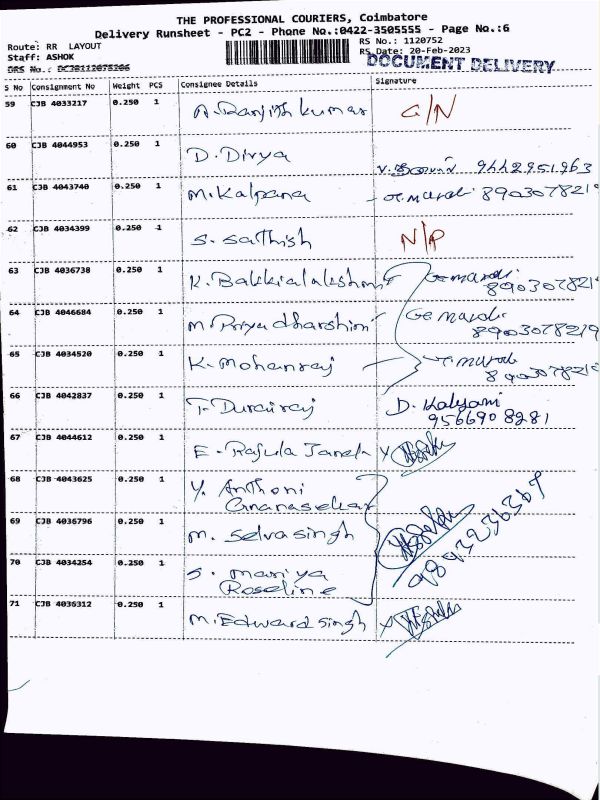 THE PROFESSIONAL COURIERS, Coimbatore
Delivery Runsheet - PC2 - Phone No.:0422-3505555 - Page No.:6
Route: RR LAYOUT
RS No.: 1120752
Staff: ASHOK
RS Date: 20-Feb-2023
DRS No.:
DOCUMENT DELIVERY
S No Consignment No Weight PCS Consignee Details Signature
59 CJB 4033217 0.250 1 A. Ranjith kumar G/N
60 CJB 4044953 0.250 1 D. Divya 9442951963
61 CJB 4043740 0.250 1 M. Kalpana 8903078219
62 CJB 4034399 0.250 1 S. Sathish N/P
63 CJB 4036738 0.250 1 K. Bakkialakshmi
8903078219
64 CJB 4046684 0.250 1 M. Priyadharshini
8903078219
65 CJB 4034520 0.250 1 K. Mohanraj
8903078219
66 CJB 4042837 0.250 1 T. Durairaj D. Kalyani
9566908281
67 CJB 4044612 0.250 1 E. Rajula
68 CJB 4043625 0.250 1 Y. Anthoni
Gnanasekar
69 CJB 4036796 0.250 1 M. Selvasingh
70 CJB 4034254 0.250 1 S. Mariya
Roseline
71 CJB 4036312 0.250 1 M. Edward Singh